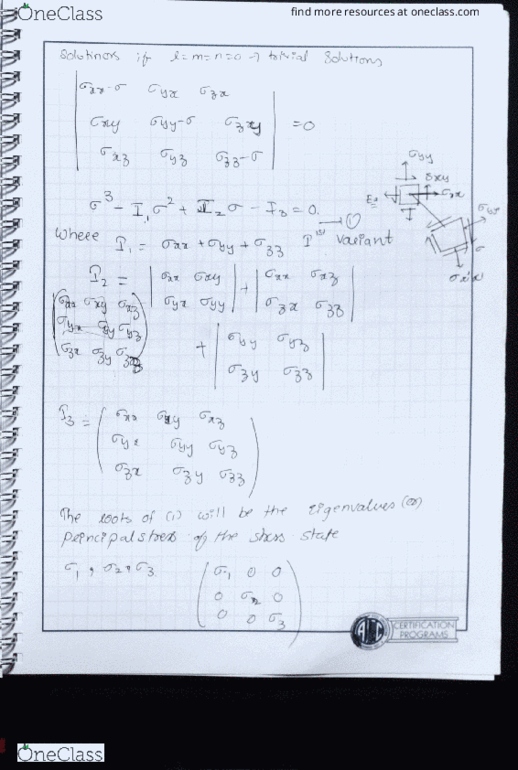 OneClass
find more resources at oneclass.com
Solutions if l=m=n=0 → trivial solutions
σxx-σ σyx σzx
σxy σyy-σ σzy =0
σxz σyz σzz-σ
σ³ - I₁σ² + I₂σ - I₃ = 0. → ①
Where I₁ = σxx + σyy + σzz Iˢᵗ variant
I₂ = | σxx σxy | + | σxx σxz |
| σyx σyy | | σzx σzz |
+ | σyy σyz |
| σzy σzz |
σxx σxy σxz
σyx σyy σyz
σzx σzy σzz
I₃ = ( σxx σxy σxz
σyx σyy σyz
σzx σzy σzz )
σyy
σxx
The roots of (1) will be the eigenvalues (or)
principal stress of the stress state
σ₁, σ₂, σ₃
( σ₁ 0 0
0 σ₂ 0
0 0 σ₃ )
CERTIFICATION
PROGRAMS
OneClass